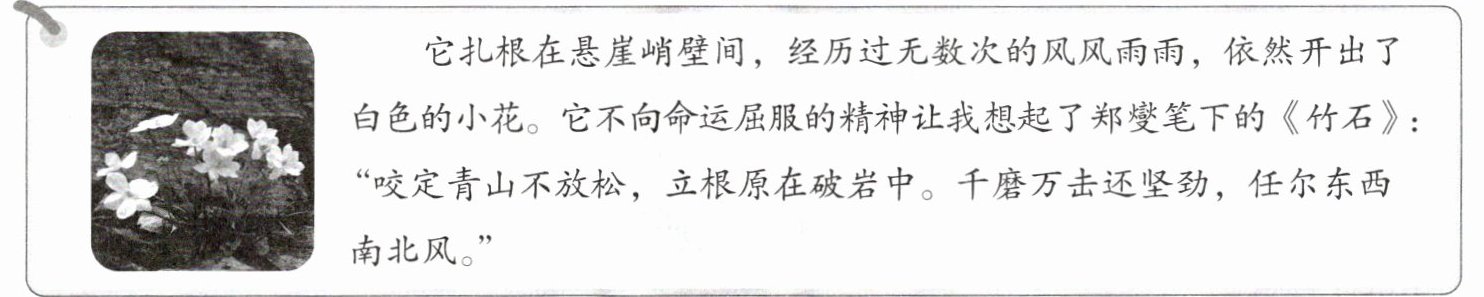 它扎根在悬崖峭壁间，经历过无数次的风风雨雨，依然开出了
白色的小花。它不向命运屈服的精神让我想起了郑燮笔下的《竹石》：
“咬定青山不放松，立根原在破岩中。千磨万击还坚劲，任尔东西
南北风。”